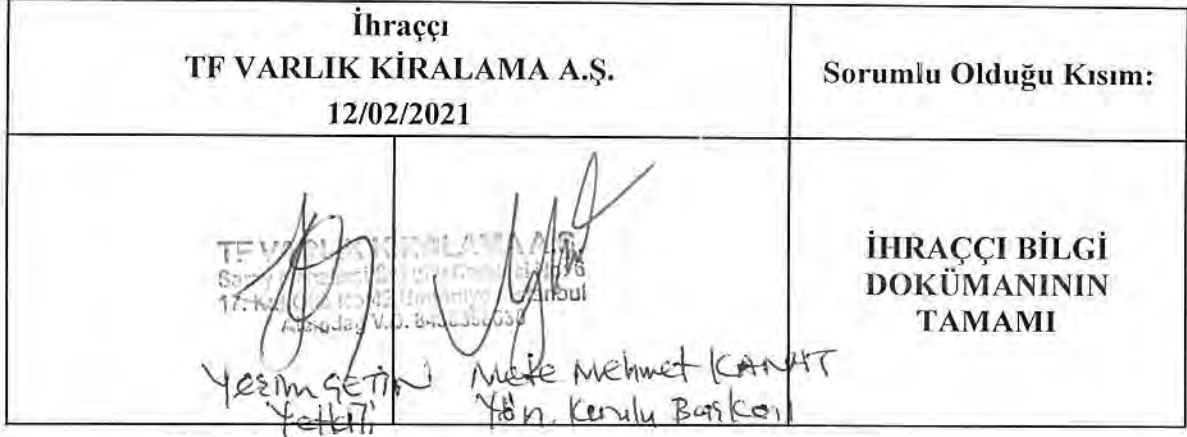 İhraççı
TF VARLIK KİRALAMA A.Ş.
12/02/2021
Sorumlu Olduğu Kısım:
TF VARLIK KİRALAMA A.Ş.
17. İstanbul
V.D.
Yeşim ÇETİN
Yetkili
Mete Mehmet KANAT
Yön. Kurulu Başkanı
İHRAÇÇI BİLGİ
DOKÜMANININ
TAMAMI